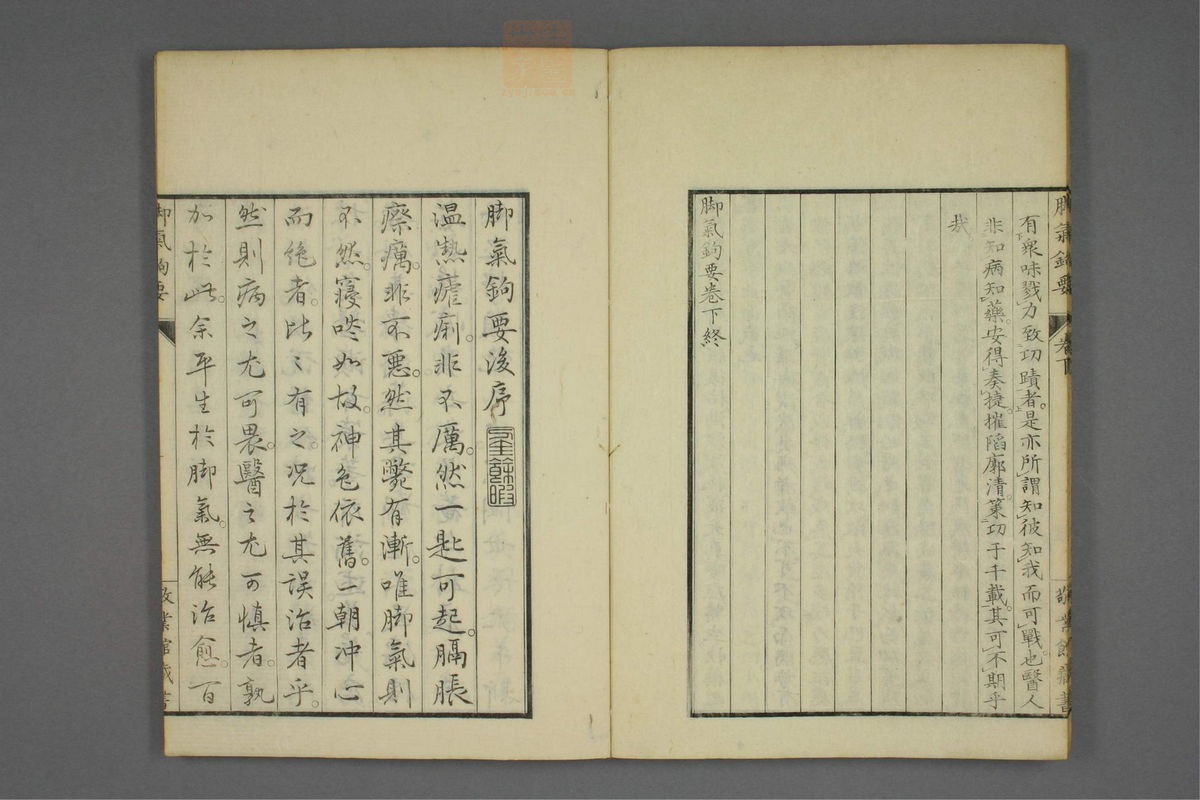 脚氣鉤要　卷下
敬業館藏書
有衆味戮力致功蹟者是亦所謂知彼知我而可戰也醫人
非知病知藥安得奏捷摧陷廓清策功于千載其可不期乎
哉
脚氣鉤要卷下終
脚氣鉤要後序
溫熱瘧痢。非不厲。然一匙可起。膈脹
瘵癘。非不惡。然其斃有漸。唯脚氣則
不然。寢啖如故。神色依舊。一朝冲心
而絶者。比〻有之。况於其誤治者乎。
然則病之尤可畏。醫之尤可慎者。孰
加於此。余平生於脚氣。無能治愈百
脚氣鉤要
敬業館藏書